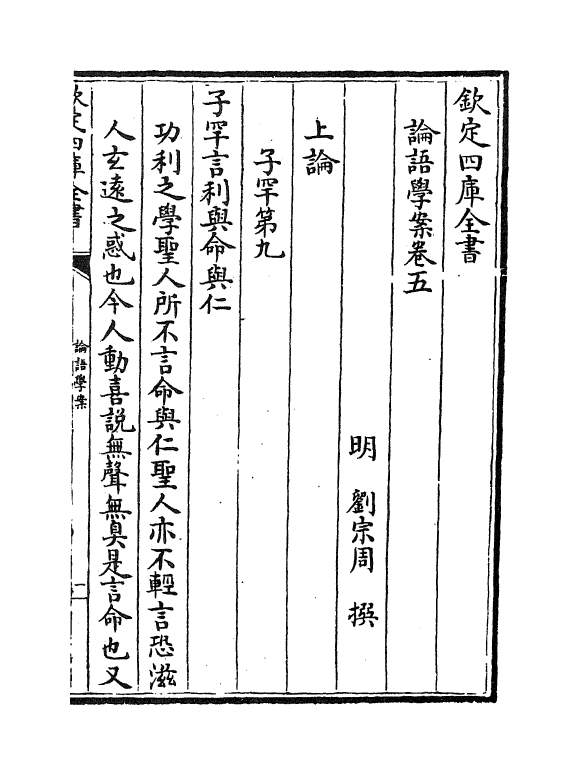 欽定四庫全書
論語學案卷五
明 劉宗周 撰
上論
子罕第九
子罕言利與命與仁
功利之學聖人所不言命與仁聖人亦不輕言恐滋
人玄遠之惑也今人動喜說無聲無臭是言命也又
欽定四庫全書
論語學案